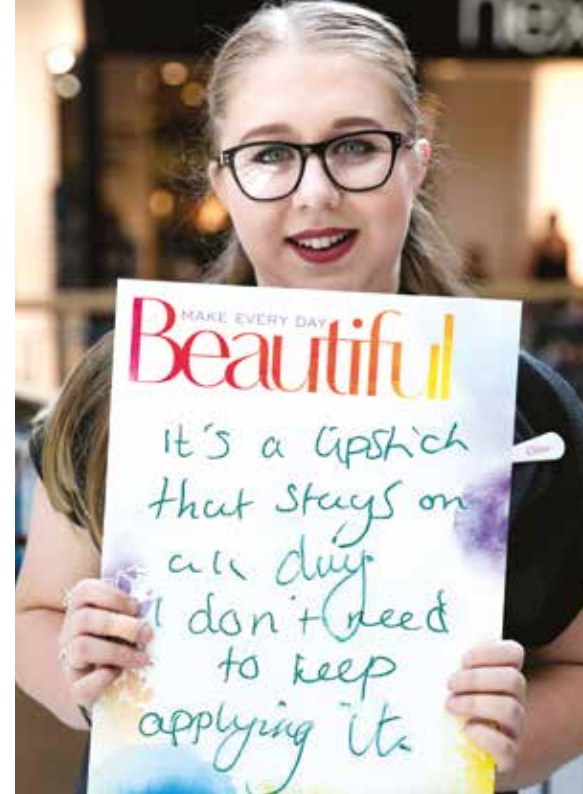 MAKE EVERY DAY
Beautiful
It's a lipstick
that stays on
all day
I don't need
to keep
applying it.